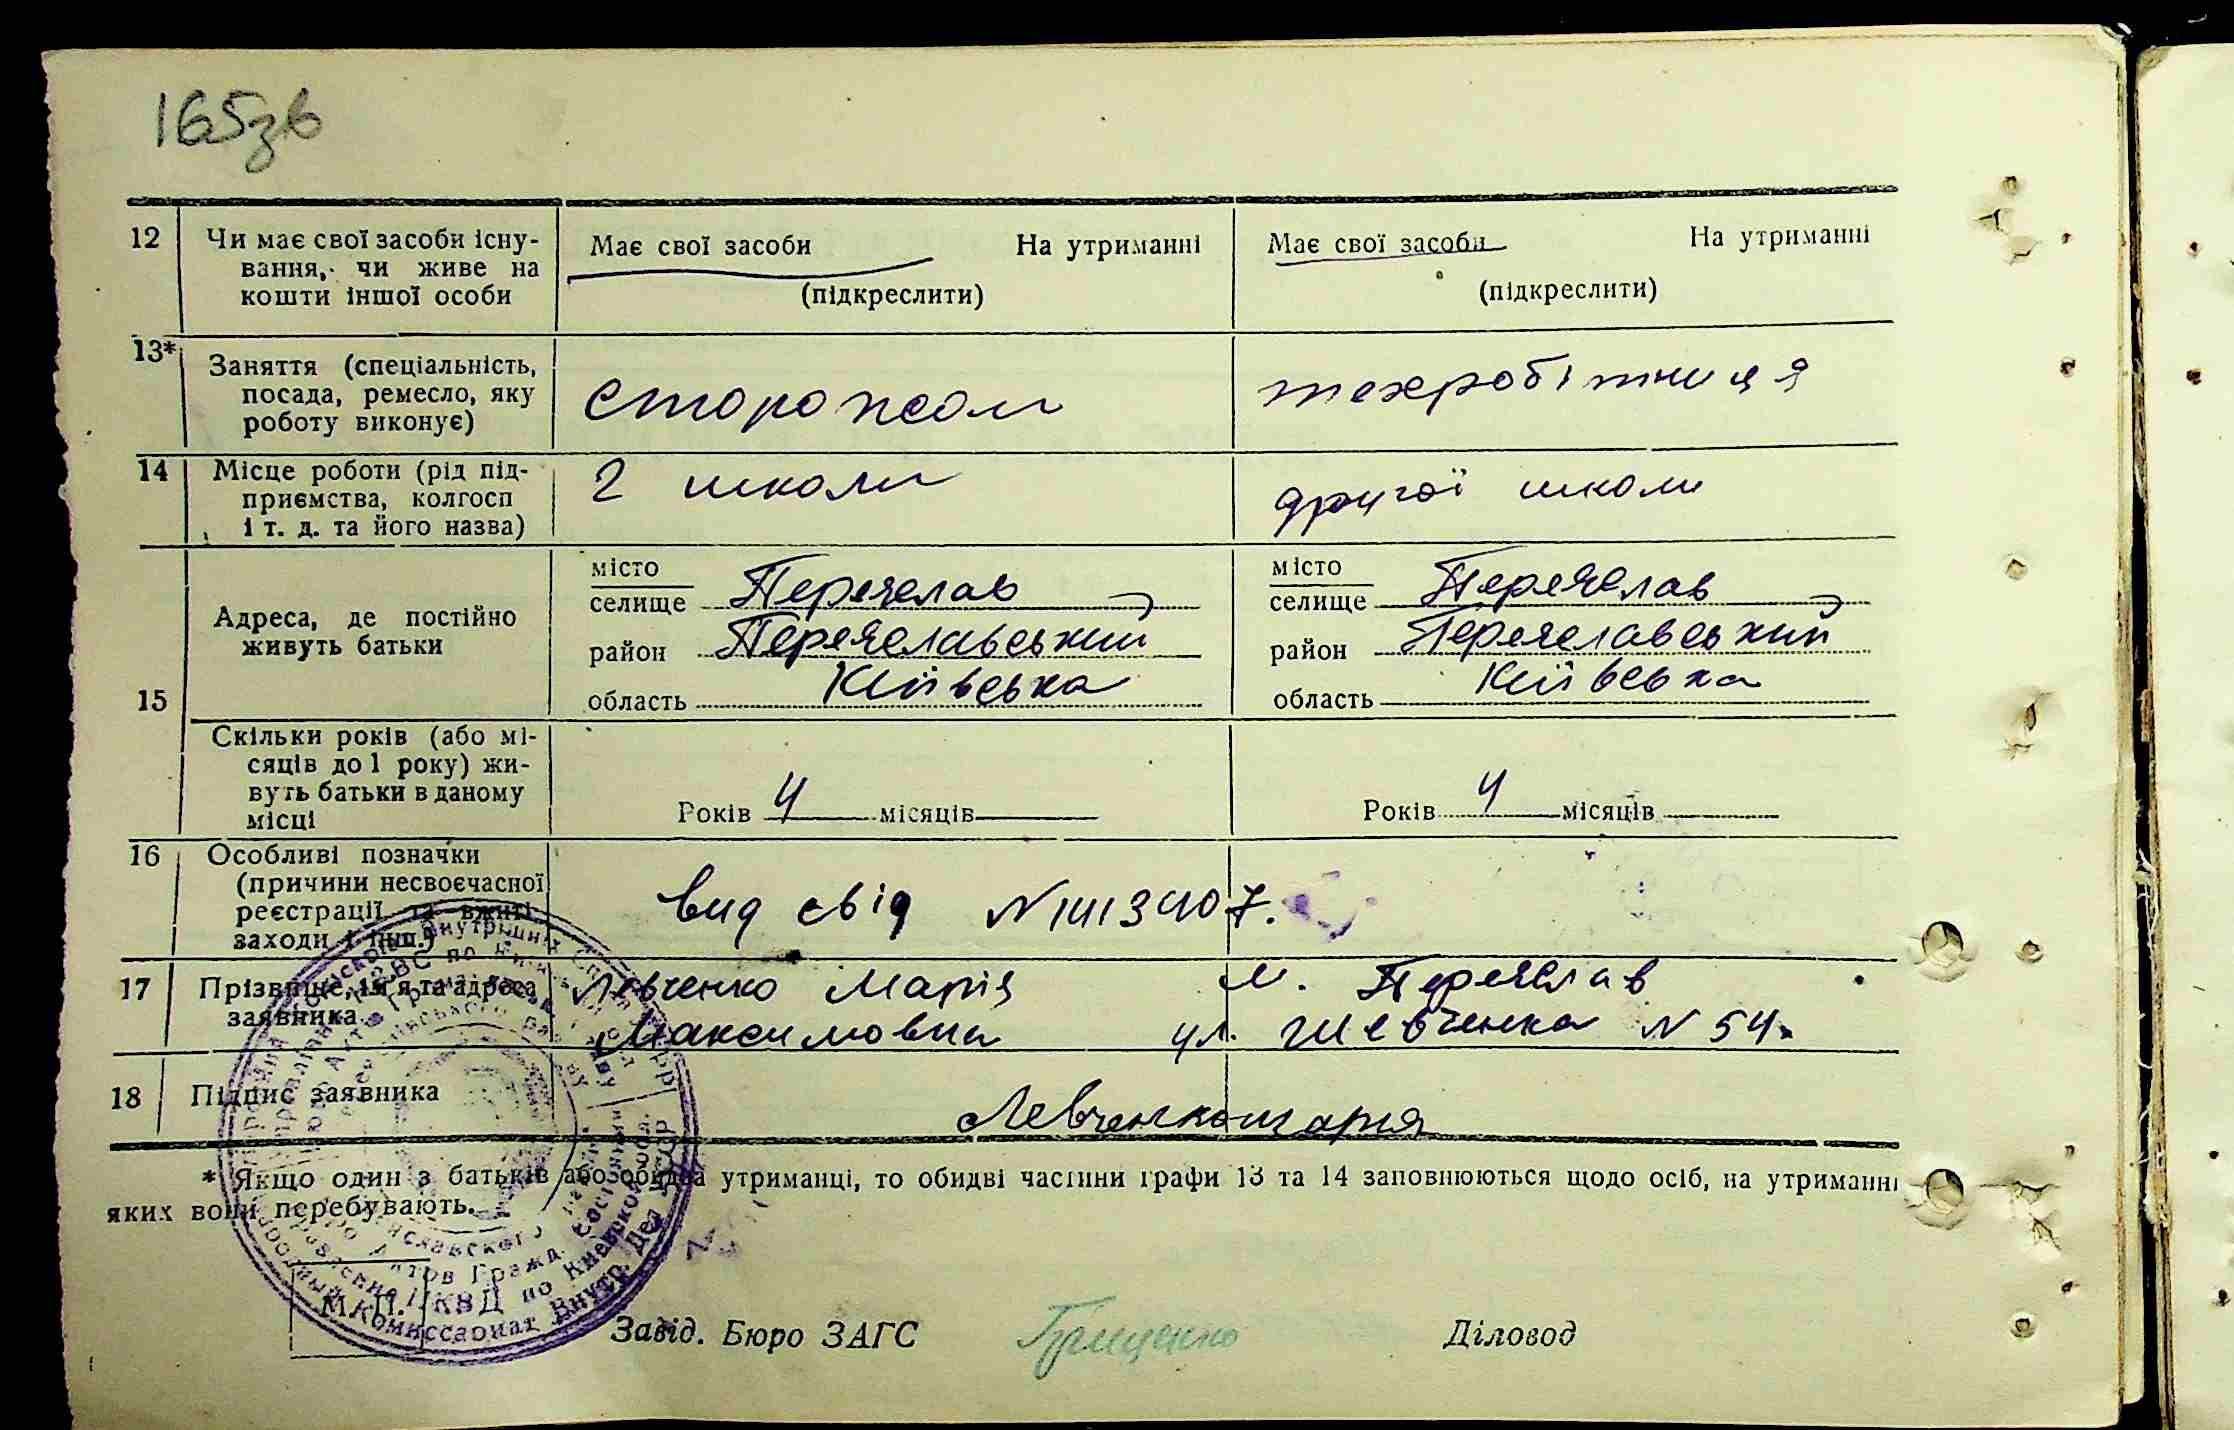 165зв
12 Чи має свої засоби існу-
вання, чи живе на
кошти іншої особи
Має свої засоби На утриманні
(підкреслити)
Має свої засоби На утриманні
(підкреслити)
13* Заняття (спеціальність,
посада, ремесло, яку
роботу виконує)
сторожом
техробітниця
14 Місце роботи (рід під-
приємства, колгосп
і т. д. та його назва)
2 школи
другої школи
15
Адреса, де постійно
живуть батьки
місто
селище Переяслав
район Переяславський
область Київська
місто
селище Переяслав
район Переяславський
область Київська
Скільки років (або мі-
сяців до 1 року) жи-
вуть батьки в даному
місці
Років 4 місяців
Років 4 місяців
16 Особливі позначки
(причини несвоєчасної
реєстрації та вжиті
заходи і інш.)
вид свід N
17 Прізвище, ім'я та адреса
заявника
Левченко Марія м. Переяслав
Максимовна ул. Шевченка N 54
18 Підпис заявника
Левченко Мария
* Якщо один з батьків або обидва утриманці, то обидві частини графи 13 та 14 заповнюються щодо осіб, на утриманні
яких вони перебувають.
М. П.
Завід. Бюро ЗАГС Грищенко Діловод